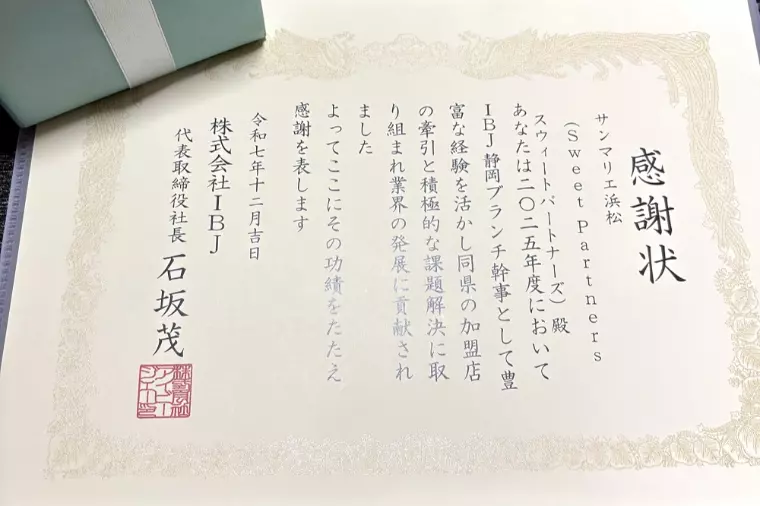 感謝状
サンマリエ浜松
(Sweet Partners
スウィートパートナーズ)殿
あなたは二〇二五年度において
IBJ静岡ブランチ幹事として豊
富な経験を活かし同県の加盟店
の牽引と積極的な課題解決に取
り組まれ業界の発展に貢献され
ました
よってここにその功績をたたえ
感謝を表します
令和七年十二月吉日
株式会社IBJ
代表取締役社長 石坂茂